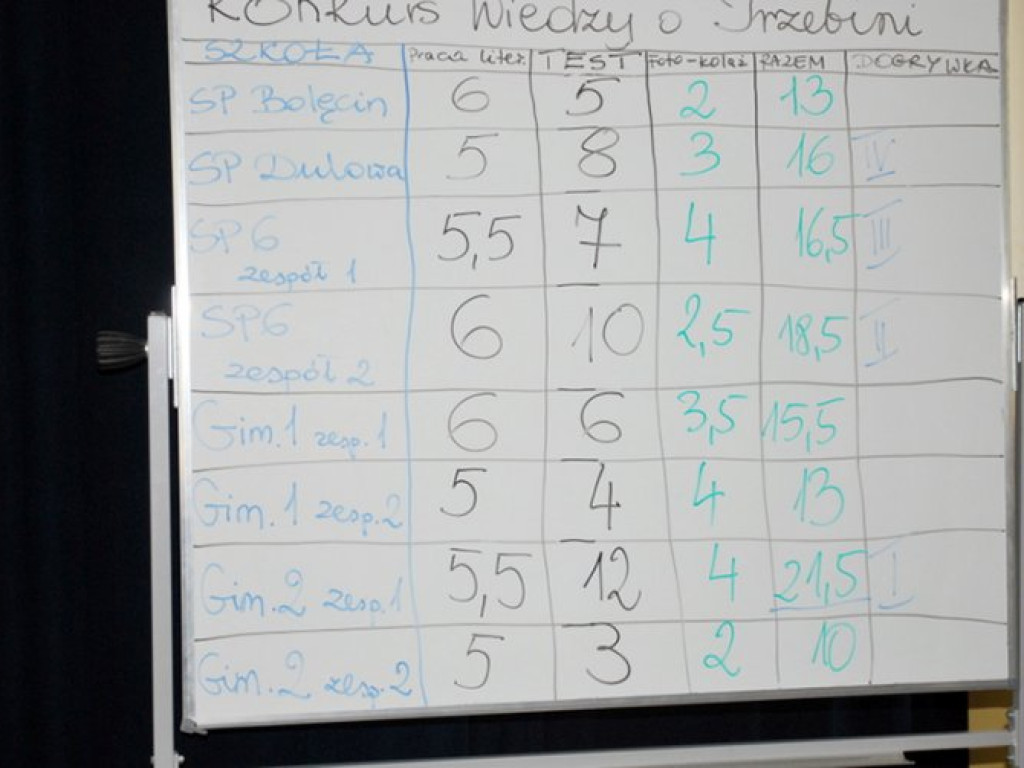 Konkurs Wiedzy o Trzebini
SZKOŁA Praca liter. TEST Foto-kolaż RAZEM DOGRYWKA
SP Bolęcin 6 5 2 13
SP Dulowa 5 8 3 16 IV
SP6 zespół 1 5,5 7 4 16,5 III
SP6 zespół 2 6 10 2,5 18,5 II
Gim. 1 zesp. 1 6 6 3,5 15,5
Gim. 1 zesp. 2 5 4 4 13
Gim. 2 zesp. 1 5,5 12 4 21,5 I
Gim. 2 zesp. 2 5 3 2 10